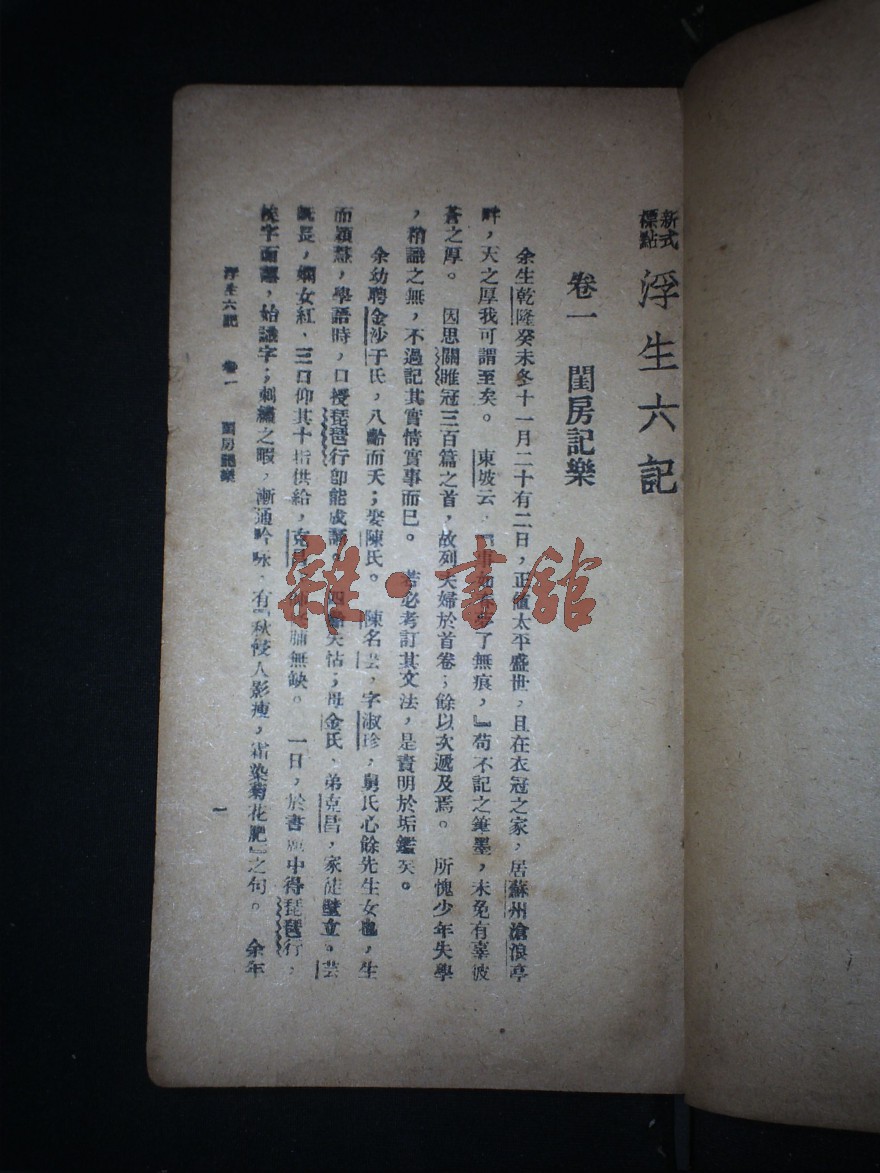 新式標點 浮生六記
卷一 閨房記樂
余生乾隆癸未冬十一月二十有二日，正值太平盛世，且在衣冠之家，居蘇州滄浪亭
畔，天之厚我可謂至矣。東坡云，『事如春夢了無痕，』苟不記之筆墨，未免有辜彼
蒼之厚。因思關雎冠三百篇之首，故列夫婦於首卷；餘以次遞及焉。所愧少年失學
，稍識之無，不過記其實情實事而已。若必考訂其文法，是責明於垢鑑矣。
余幼聘金沙于氏，八齡而夭；娶陳氏。陳名芸，字淑珍，舅氏心餘先生女也，生
而穎慧，學語時，口授琵琶行卽能成誦。四齡失怙；母金氏、弟克昌，家徒壁立。芸
旣長，嫻女紅，三口仰其十指供給，克昌 脯無缺。一日，於書 中得琵琶行，
挨字而認，始識字；刺繡之暇，漸通吟咏，有『秋侵人影瘦，霜染菊花肥』之句。余年
浮生六記 卷一 閨房記樂
一
雜·書館